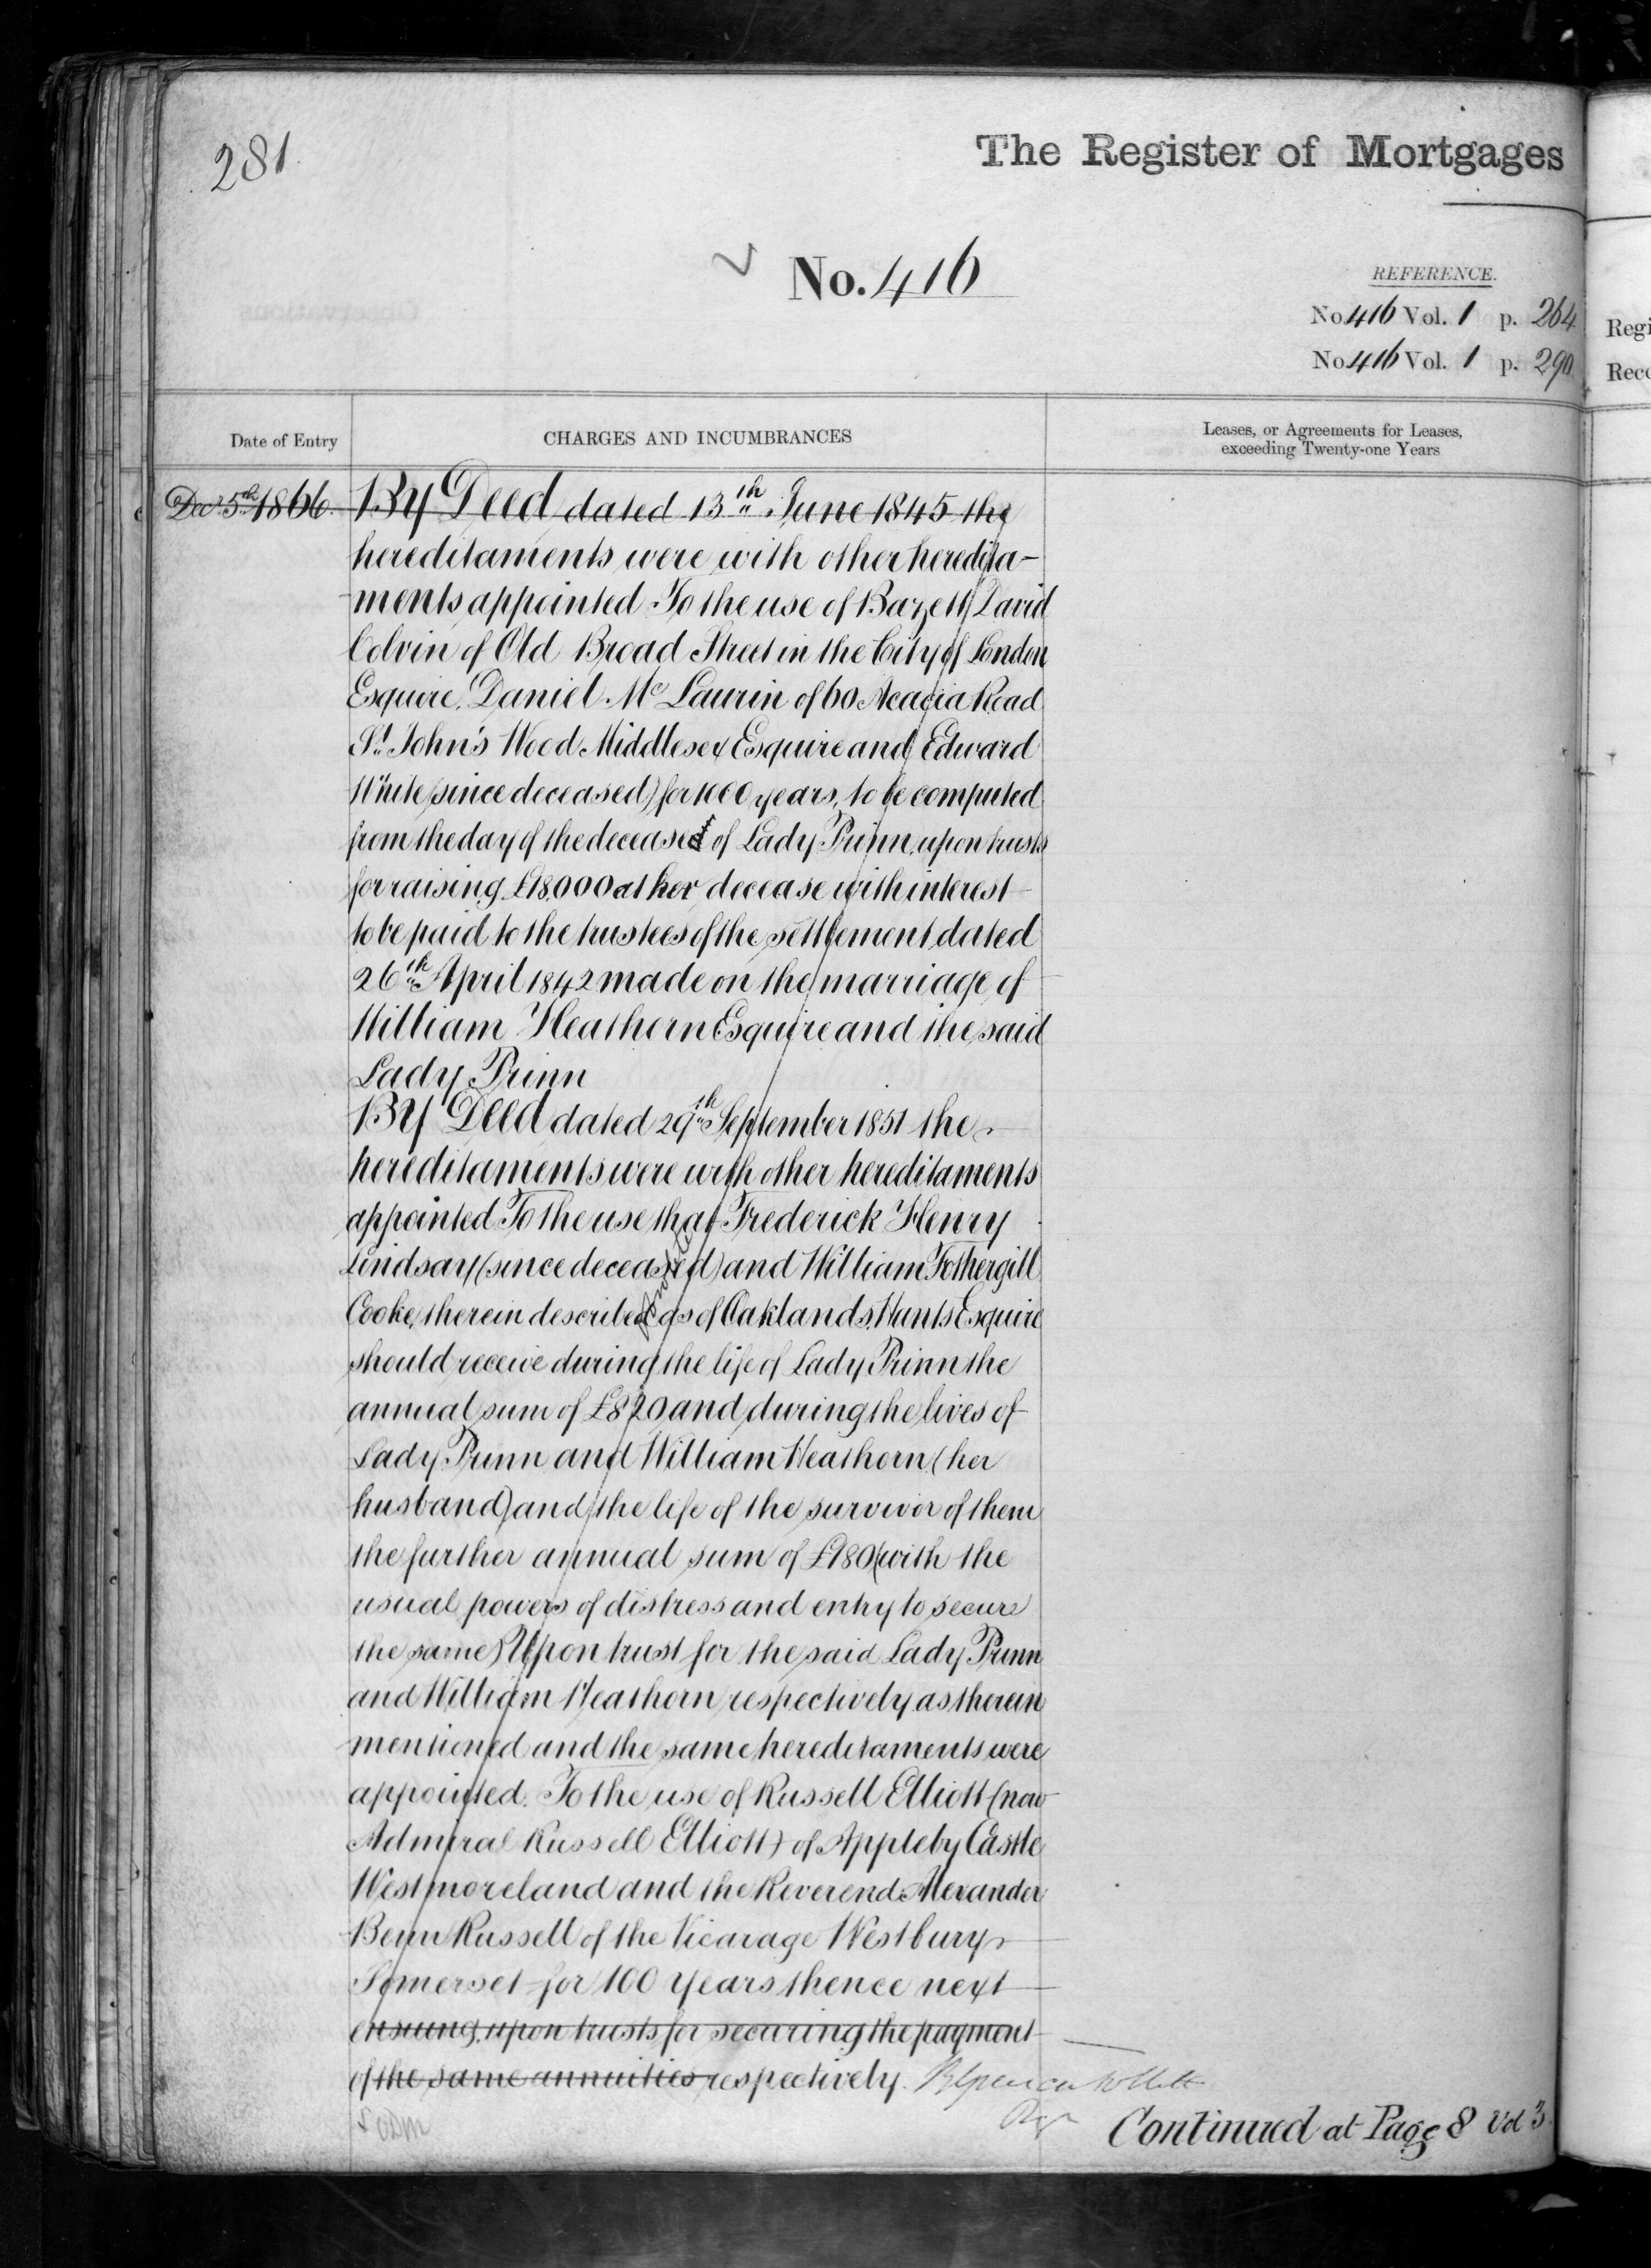 281.
The Register of Mortgages
No. 416
REFERENCE.
No. 416 Vol. 1 p. 264
No. 416 Vol. 1 p. 290
Regi
Reco
Date of Entry
CHARGES AND INCUMBRANCES
Leases, or Agreements for Leases,
exceeding Twenty-one Years
Decr 5th 1866.
By Deed dated 13th June 1845 the
hereditaments were with other heredita-
ments appointed To the use of Bazett David
Colvin of Old Broad Street in the City of London
Esquire, Daniel Mc Laurin of 60 Acacia Road
St. John's Wood Middlesex Esquire and Edward
White (since deceased) for 1000 years, to be computed
from the day of the decease of Lady Prinn, upon trusts
for raising £18,000 at her decease with interest
to be paid to the trustees of the settlement dated
26th April 1842 made on the marriage of
William Heathorn Esquire and the said
Lady Prinn
By Deed dated 29th September 1851 the
hereditaments were with other hereditaments
appointed To the use that Frederick Henry
Lindsay (since deceased) and William Fothergill
Cooke, therein described as of Oaklands, Hunts Esquire
should receive during the life of Lady Prinn the
annual sum of £820 and during the lives of
Lady Prinn and William Heathorn (her
husband) and the life of the survivor of them
the further annual sum of £180 (with the
usual powers of distress and entry to secure
the same) Upon trust for the said Lady Prinn
and William Heathorn respectively as therein
mentioned and the same hereditaments were
appointed To the use of Russell Elliott (now
Admiral Russell Elliott) of Appleby Castle
Westmoreland and the Reverend Alexander
Benn Russell of the Vicarage Westbury
Somerset for 100 years thence next
ensuing, upon trusts for securing the payment
of the same annuities respectively.
Continued at Page 8 Vol 3